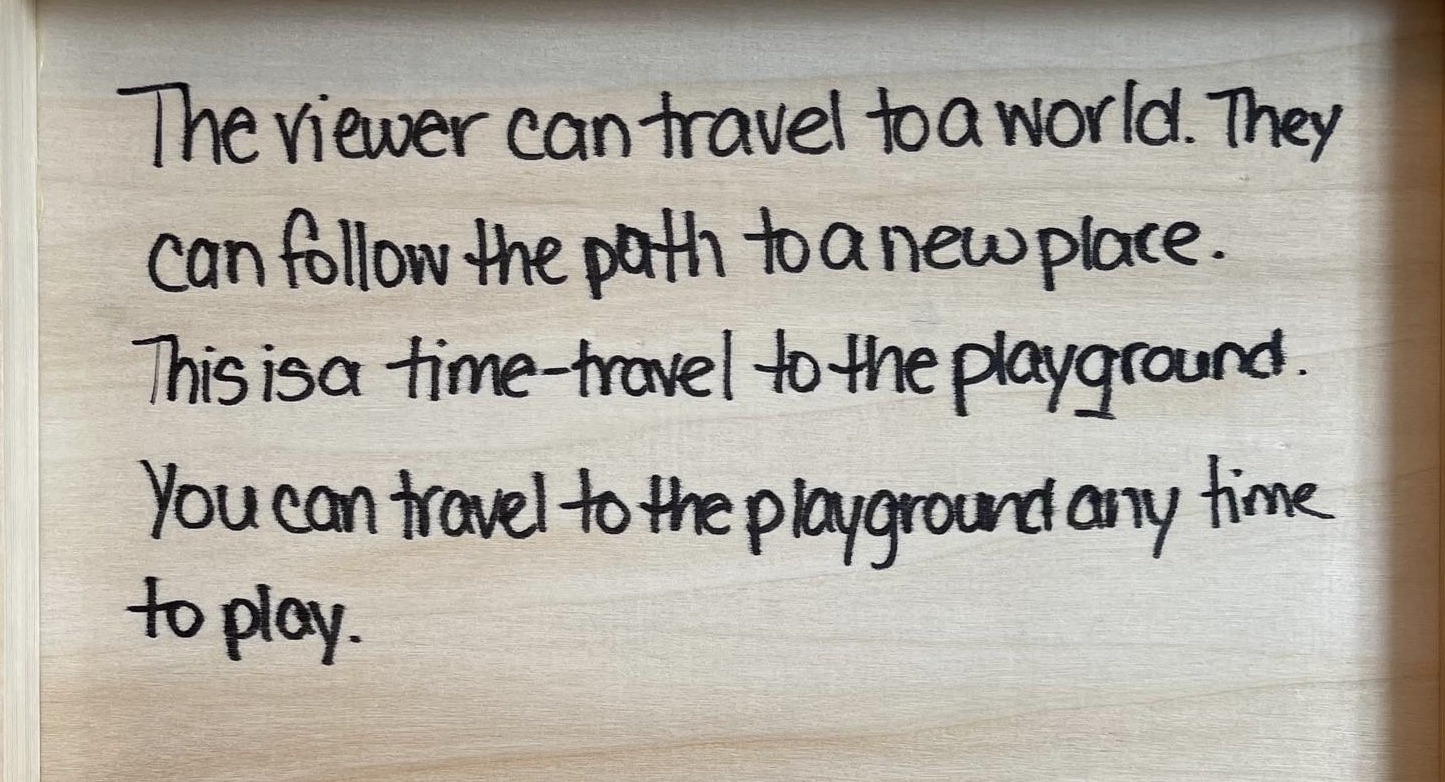 The viewer can travel to a world. They
can follow the path to a new place.
This is a time-travel to the playground.
You can travel to the playground any time
to play.